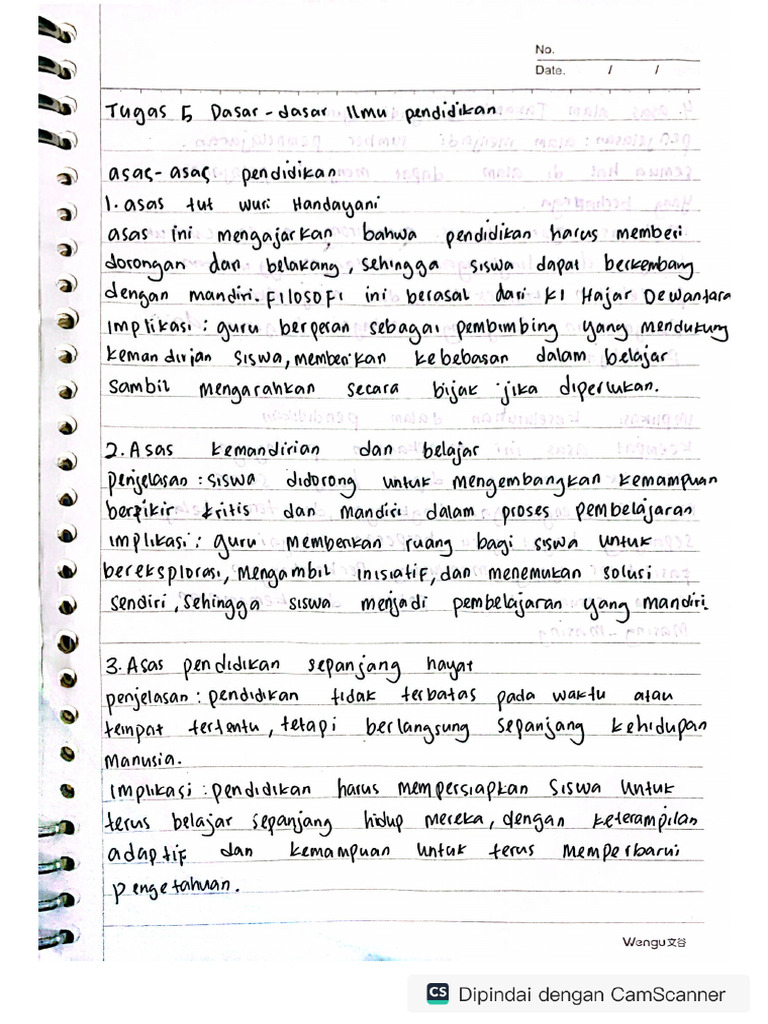 No.
Date. / /
Tugas 5 Dasar-dasar Ilmu pendidikan
asas-asas pendidikan
1. asas tut wuri Handayani
asas ini mengajarkan bahwa pendidikan harus memberi
dorongan dari belakang, sehingga siswa dapat berkembang
dengan mandiri. Filosofi ini berasal dari KI Hajar Dewantara
Implikasi : guru berperan sebagai pembimbing yang mendukung
kemandirian siswa, memberikan kebebasan dalam belajar
sambil mengarahkan secara bijak jika diperlukan.
2. Asas kemandirian dan belajar
penjelasan : siswa didorong untuk mengembangkan kemampuan
berpikir kritis dan mandiri dalam proses pembelajaran
Implikasi : guru memberikan ruang bagi siswa untuk
bereksplorasi, mengambil inisiatif, dan menemukan solusi
sendiri, sehingga siswa menjadi pembelajaran yang mandiri.
3. Asas pendidikan sepanjang hayat
penjelasan : pendidikan tidak terbatas pada waktu atau
tempat tertentu, tetapi berlangsung sepanjang kehidupan
manusia.
Implikasi : pendidikan harus mempersiapkan siswa untuk
terus belajar sepanjang hidup mereka, dengan keterampilan
adaptif dan kemampuan untuk terus memperbarui
pengetahuan.
Wengu文谷
CS Dipindai dengan CamScanner